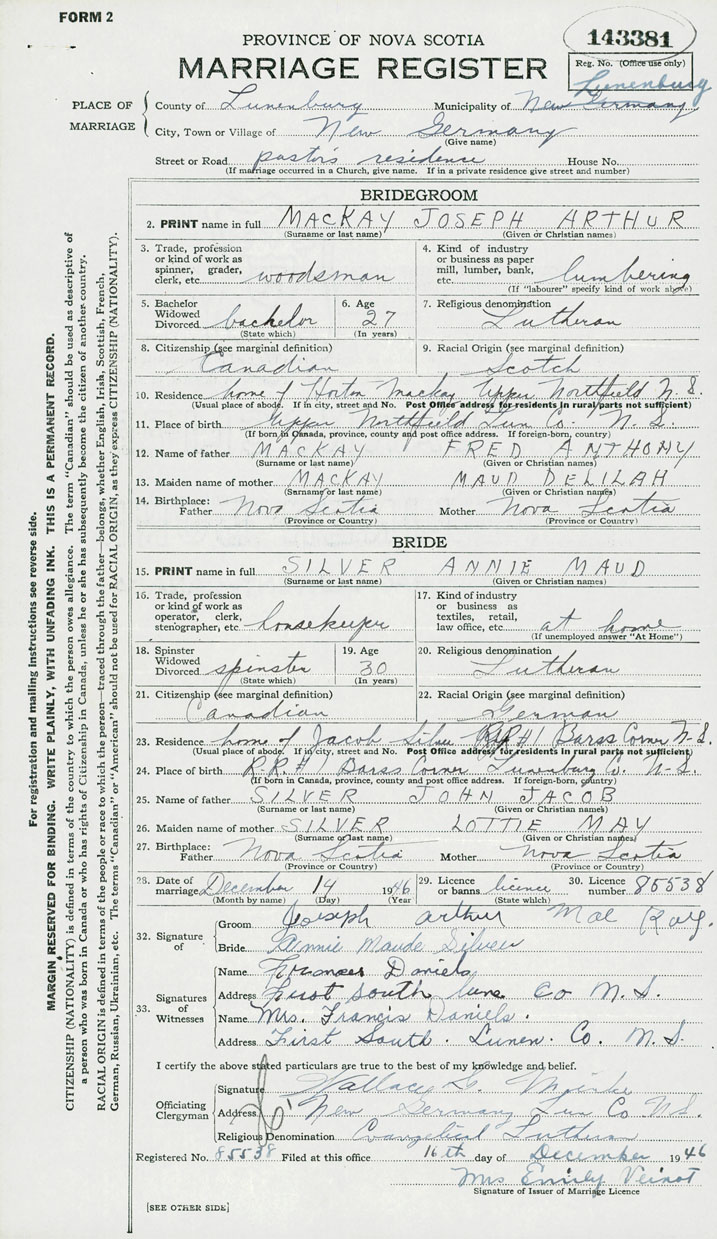 FORM 2
143381
PROVINCE OF NOVA SCOTIA
MARRIAGE REGISTER
Reg. No. (Office use only)
Lunenburg
PLACE OF MARRIAGE
County of Lunenburg Municipality of New Germany
City, Town or Village of New Germany
(Give name)
Street or Road pastor's residence House No.
(If marriage occurred in a Church, give name. If in a private residence give street and number)
BRIDEGROOM
2. PRINT name in full MACKAY JOSEPH ARTHUR
(Surname or last name) (Given or Christian names)
3. Trade, profession or kind of work as spinner, grader, clerk, etc. woodsman
4. Kind of industry or business as paper mill, lumber, bank, etc. lumbering
(If "labourer" specify kind of work above)
5. Bachelor Widowed Divorced bachelor
(State which)
6. Age 27
(In years)
7. Religious denomination
Lutheran
8. Citizenship (see marginal definition)
Canadian
9. Racial Origin (see marginal definition)
Scotch
10. Residence home of Horton Mackay Upper Northfield N. S.
(Usual place of abode. If in city, street and No. Post Office address for residents in rural parts not sufficient)
11. Place of birth Upper Northfield Lun Co. N. S.
(If born in Canada, province, county and post office address. If foreign-born, country)
12. Name of father MACKAY FRED ANTHONY
(Surname or last name) (Given or Christian names)
13. Maiden name of mother MACKAY MAUD DELILAH
(Surname or last name) (Given or Christian names)
14. Birthplace: Father Nova Scotia Mother Nova Scotia
(Province or Country) (Province or Country)
BRIDE
15. PRINT name in full SILVER ANNIE MAUD
(Surname or last name) (Given or Christian names)
16. Trade, profession or kind of work as operator, clerk, stenographer, etc. housekeeper
17. Kind of industry or business as textiles, retail, law office, etc. at home
(If unemployed answer "At Home")
18. Spinster Widowed Divorced spinster
(State which)
19. Age 30
(In years)
20. Religious denomination
Lutheran
21. Citizenship (see marginal definition)
Canadian
22. Racial Origin (see marginal definition)
German
23. Residence home of Jacob Silver RR#1 Barss Corner N-S.
(Usual place of abode. If in city, street and No. Post Office address for residents in rural parts not sufficient)
24. Place of birth R.R. #1 Barss Corner Lunenburg Co. N-S.
(If born in Canada, province, county and post office address. If foreign-born, country)
25. Name of father SILVER JOHN JACOB
(Surname or last name) (Given or Christian names)
26. Maiden name of mother SILVER LOTTIE MAY
(Surname or last name) (Given or Christian names)
27. Birthplace: Father Nova Scotia Mother Nova Scotia
(Province or Country) (Province or Country)
28. Date of marriage December 14 1946
(Month by name) (Day) (Year)
29. License or banns licence
(State which)
30. Licence number 85538
32. Signature of
Groom Joseph arthur Mac Kay.
Bride Annie Maude Silver
33. Signatures of Witnesses
Name Frances Daniels
Address first south lune Co N. S.
Name Mrs. Francis Daniels.
Address First South. Lunen. Co. N. S.
I certify the above stated particulars are true to the best of my knowledge and belief.
Officiating Clergyman
Signature Wallace G. Minke
Address New Germany Lun Co N.S.
Religious Denomination Evangelical Lutheran
Registered No. 85538 Filed at this office 16th day of December 1946
Mrs Emily Veinot
Signature of Issuer of Marriage Licence
[SEE OTHER SIDE]
For registration and mailing instructions see reverse side.
MARGIN RESERVED FOR BINDING. WRITE PLAINLY, WITH UNFADING INK. THIS IS A PERMANENT RECORD.
CITIZENSHIP (NATIONALITY) is defined in terms of the country to which the person owes allegiance. The term "Canadian" should be used as descriptive of
a person who was born in Canada or who has rights of Citizenship in Canada, unless he or she has subsequently become the citizen of another country.
RACIAL ORIGIN is defined in terms of the people or race to which the person—traced through the father—belongs, whether English, Irish, Scottish, French,
German, Russian, Ukrainian, etc. The terms "Canadian" or "American" should not be used for RACIAL ORIGIN, as they express CITIZENSHIP (NATIONALITY).